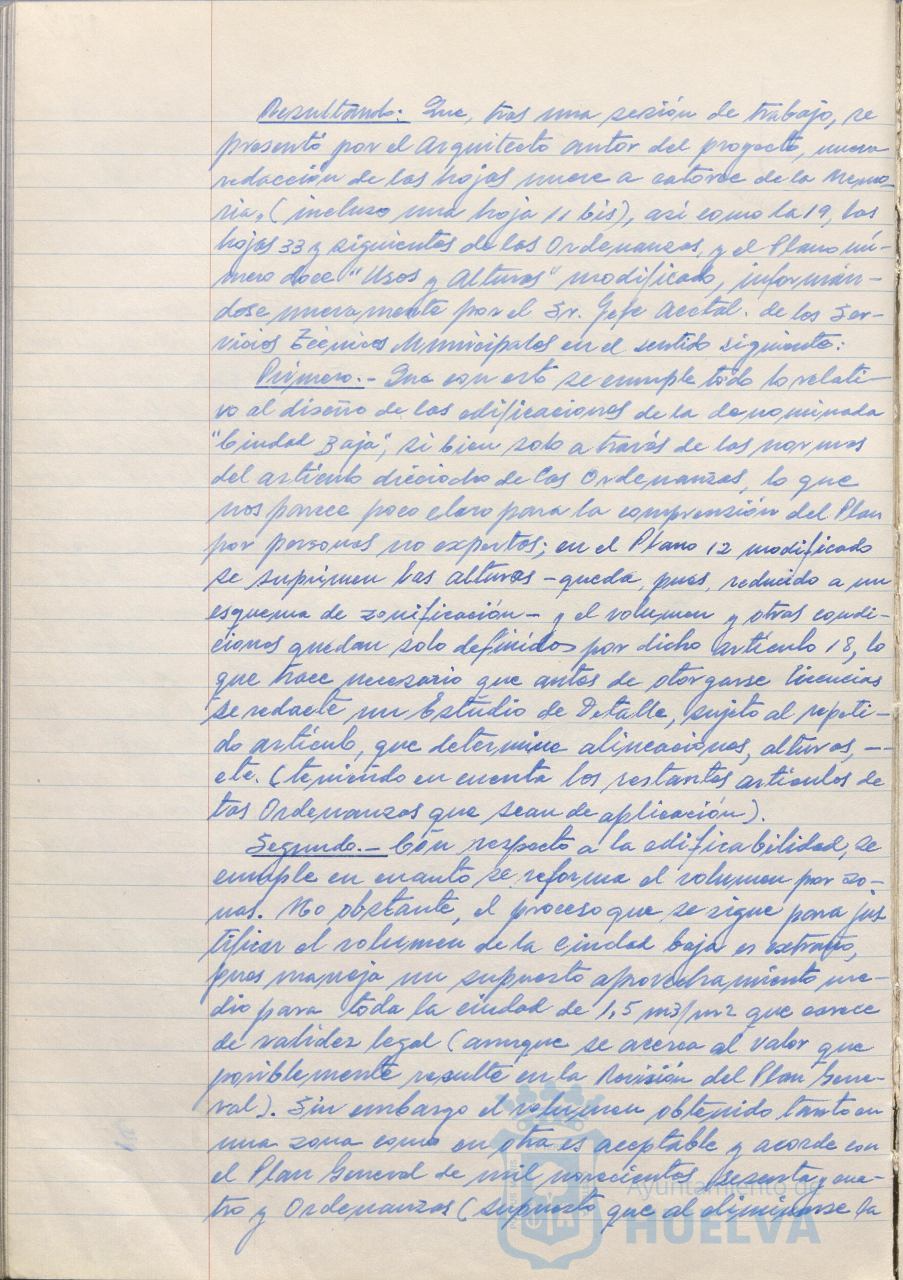 Resultando: Que, tras una sesión de trabajo, se
presentó por el Arquitecto autor del proyecto, nueva
redacción de las hojas nueve a catorce de la Memo-
ria, (incluso una hoja 11 bis), así como la 19, las
hojas 33 y siguientes de las Ordenanzas, y el Plano nú-
mero doce "Usos y Alturas" modificado, informán-
dose nuevamente por el Sr. Gefe Acctal. de los Ser-
vicios Técnicos Municipales en el sentido siguiente:
Primero.- Que con esto se cumple todo lo relati-
vo al diseño de las edificaciones de la denominada
"Ciudad Baja", si bien solo a través de las normas
del artículo dieciocho de las Ordenanzas, lo que
nos parece poco claro para la comprensión del Plan
por personas no expertas; en el Plano 12 modificado
se suprimen las alturas - queda, pues, reducido a un
esquema de zonificación - y el volumen y otras condi-
ciones quedan solo definidos por dicho artículo 18, lo
que hace necesario que antes de otorgarse licencias
se redacte un Estudio de Detalle, sujeto al repeti-
do artículo, que determine alineaciones, alturas, --
etc. (teniendo en cuenta los restantes artículos de
las Ordenanzas que sean de aplicación).
Segundo.- Con respecto a la edificabilidad, se
cumple en cuanto se reforma el volumen por zo-
nas. No obstante, el proceso que se sigue para jus
tificar el volumen de la ciudad baja es extraño,
pues maneja un supuesto aprovechamiento me-
dio para toda la ciudad de 1,5 m3/m2 que carece
de validez legal (aunque se acerca al valor que
posiblemente resulte en la Revisión del Plan Gene-
ral). Sin embargo el volumen obtenido tanto en
una zona como en otra es aceptable y acorde con
el Plan General de mil novecientos sesenta y cua-
tro y Ordenanzas (supuesto que al eliminarse la
Ayuntamiento de
HUELVA